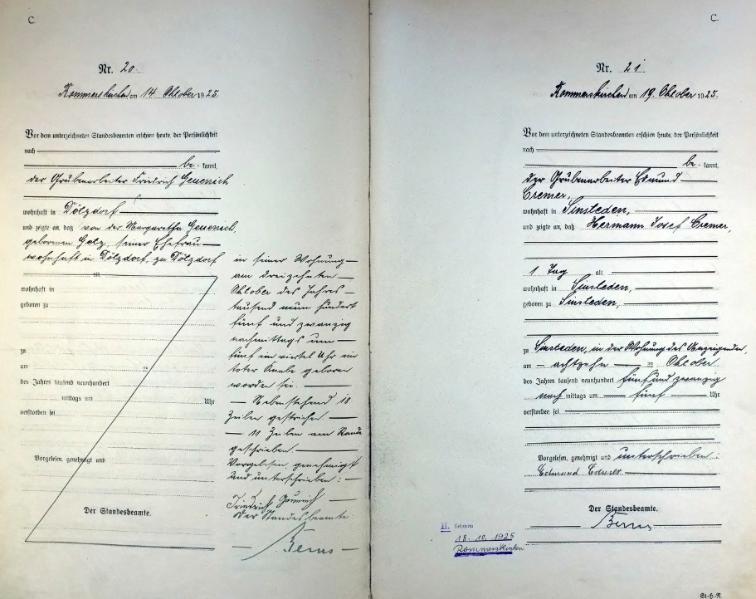 C.
Nr. 20.
Rommerskirchen am 14 Oktober 1925.
Vor dem unterzeichneten Standesbeamten erschien heute, der Persönlichkeit
nach
be-kannt,
der Grubenarbeiter Friedrich Geuenich
wohnhaft in Dölzdorf
und zeigte an, daß von der Margaretha Geuenich,
geborenen Golz, seiner Ehefrau
wohnhaft in Dölzdorf, zu Dölzdorf
alt
wohnhaft in
geboren zu
zu
am ten
des Jahres tausend neunhundert
mittags um Uhr
verstorben sei.
Vorgelesen, genehmigt und
Der Standesbeamte.
in seiner Wohnung
am dreizehnten
Oktober des Jahres
tausend neun hundert
fünf und zwanzig
nachmittags um
fünf ein viertel Uhr ein
toter Knabe geboren
worden sei.
Nebenstehend 18
Zeilen gestrichen
11 Zeilen am Rande
geschrieben.
Vorgelesen, genehmigt
und unterschrieben:
Friedrich Geuenich
Der Standesbeamte.
C.
Nr. 21
Rommerskirchen am 19. Oktober 1925.
Vor dem unterzeichneten Standesbeamten erschien heute, der Persönlichkeit
nach
be-kannt,
der Grubenarbeiter Edmund
Cremer,
wohnhaft in Sinsteden,
und zeigte an, daß Hermann Josef Cremer,
1 Tag alt
wohnhaft in Sinsteden,
geboren zu Sinsteden,
zu Sinsteden, in der Wohnung des Anzeigenden,
am achtzehn ten Oktober
des Jahres tausend neunhundert fünf und zwanzig
nachmittags um fünf Uhr
verstorben sei.
Vorgelesen, genehmigt und unterschrieben:
Edmund Cremer
Der Standesbeamte.
18. 10. 1925
Rommerskirchen